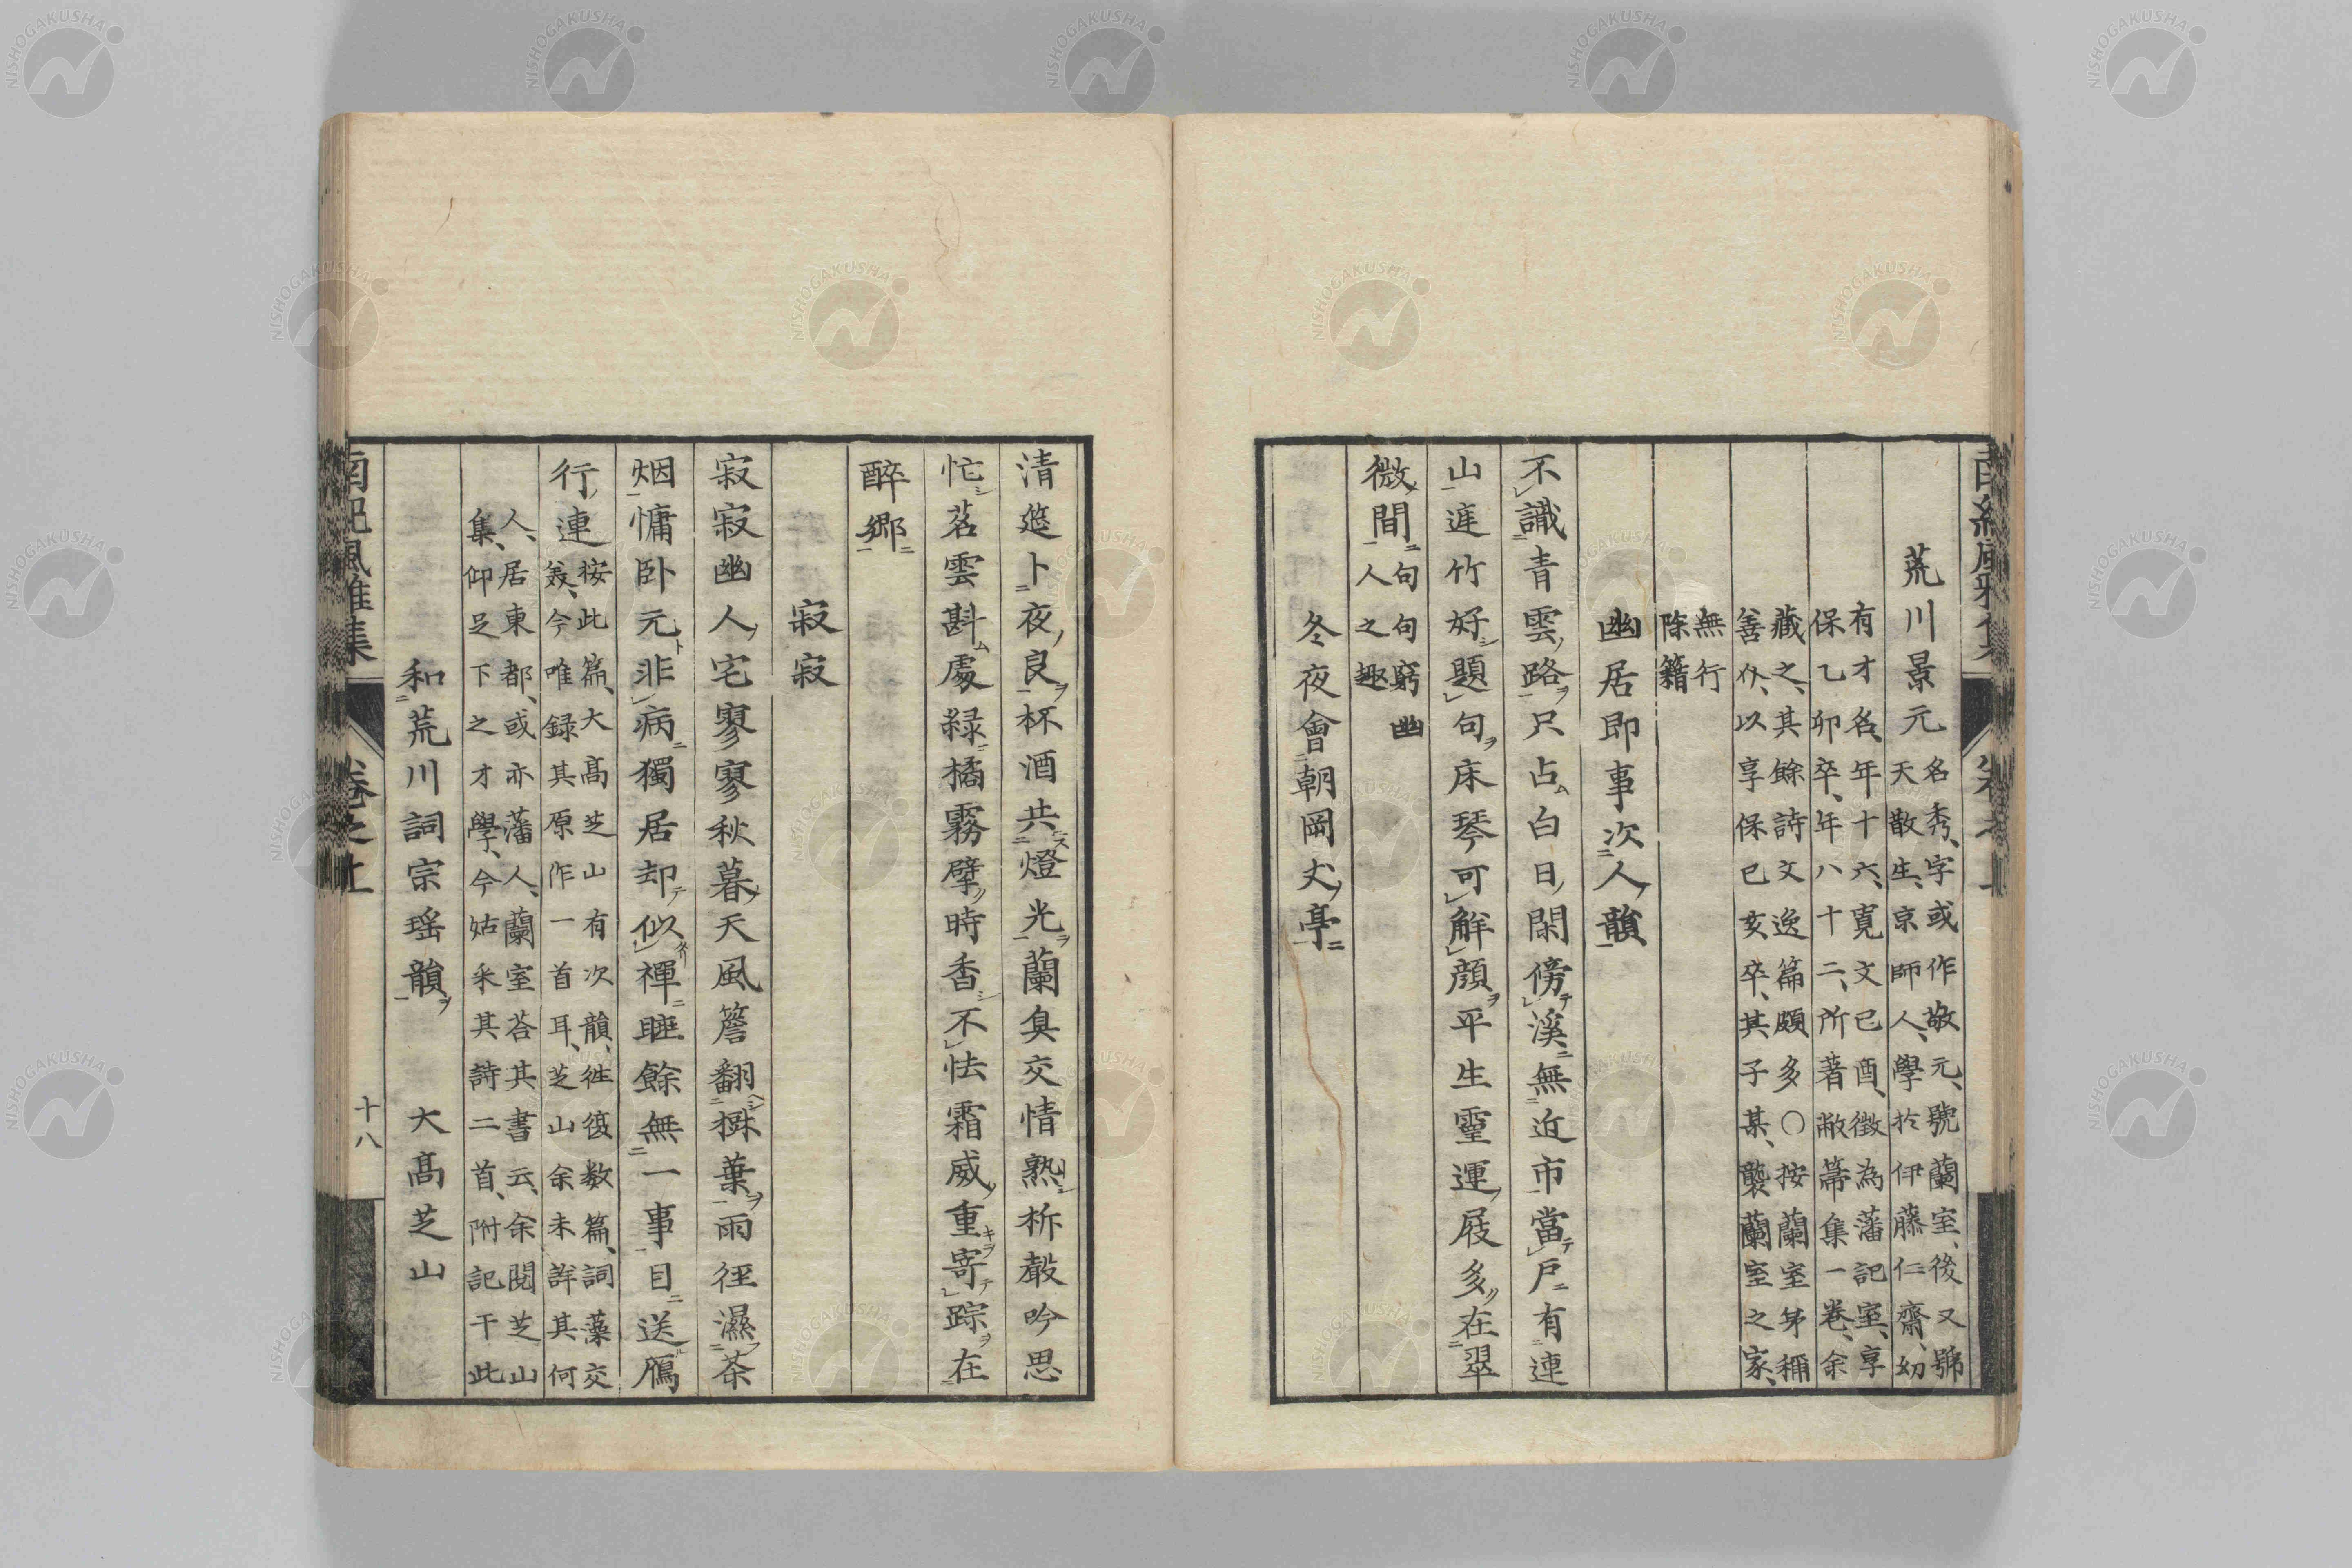 荒川景元 名秀、字或作敬元、號蘭室、後又號
天散生、京師人、學於伊藤仁齋、幼
有才名、年十六、寬文已酉、徵為藩記室、享
保乙卯卒、年八十二、所著敝帚集一卷、余
藏之、其餘詩文逸篇頗多○按蘭室弟稱
善仆、以享保已亥卒、其子某、襲蘭室之家、
無行
除籍
幽居即事次人韻
不識青雲路只占白日閑傍溪無近市當戶有連
山涯竹好題句床琴可解顏平生靈運屐多在翠
微間 句句窮幽
人之趣
冬夜會朝岡丈亭
清筵卜夜良杯酒共燈光蘭臭交情熟柝聲吟思
忙茗雲斟處緑橘霧擘時香不怯霜威重寄踪在
醉鄉
寂寂
寂寂幽人宅寥寥秋暮天風簷翻槲葉雨徑濕茶
烟慵卧元非病獨居却似禪睡餘無一事目送鴈
行連 按此篇、大高芝山有次韻、往復数篇、詞藻交
發、今唯録其原作一首耳、芝山余未詳其何
人、居東都、或亦藩人、蘭室荅其書云、余閱芝山
集、仰足下之才學、今姑采其詩二首、附記于此
和荒川詞宗瑶韻 大高芝山
南紀風雅集 卷之上 十八